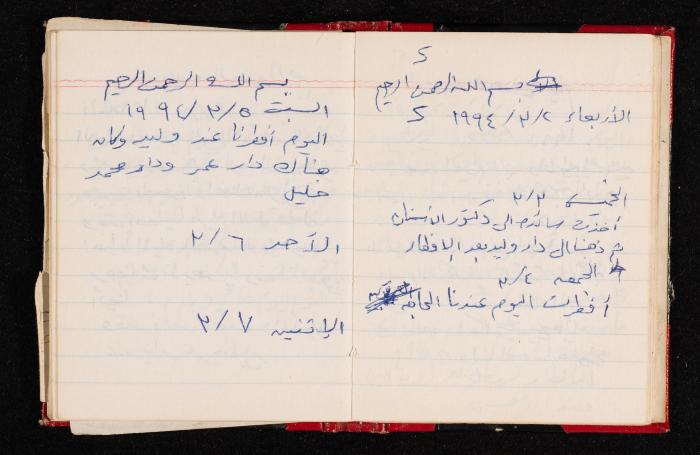 5
بسم الله الرحمن الرحيم
الأربعاء ١٩٩٤/٣/٢ 5
الخميس ٣/٣
أخذت سائده الى دكتور الأسنان
ثم ذهبنا الى دار وليد بعد الإفطار
الجمعه ٣/٤
أفطرت اليوم عندنا الحاجه
بسم الله الرحمن الرحيم
السبت ١٩٩٤/٣/٥
اليوم أفطرنا عند وليد وكان
هناك دار عمر ودار محمد
خليل
الأحد ٣/٦
الإثنين ٣/٧